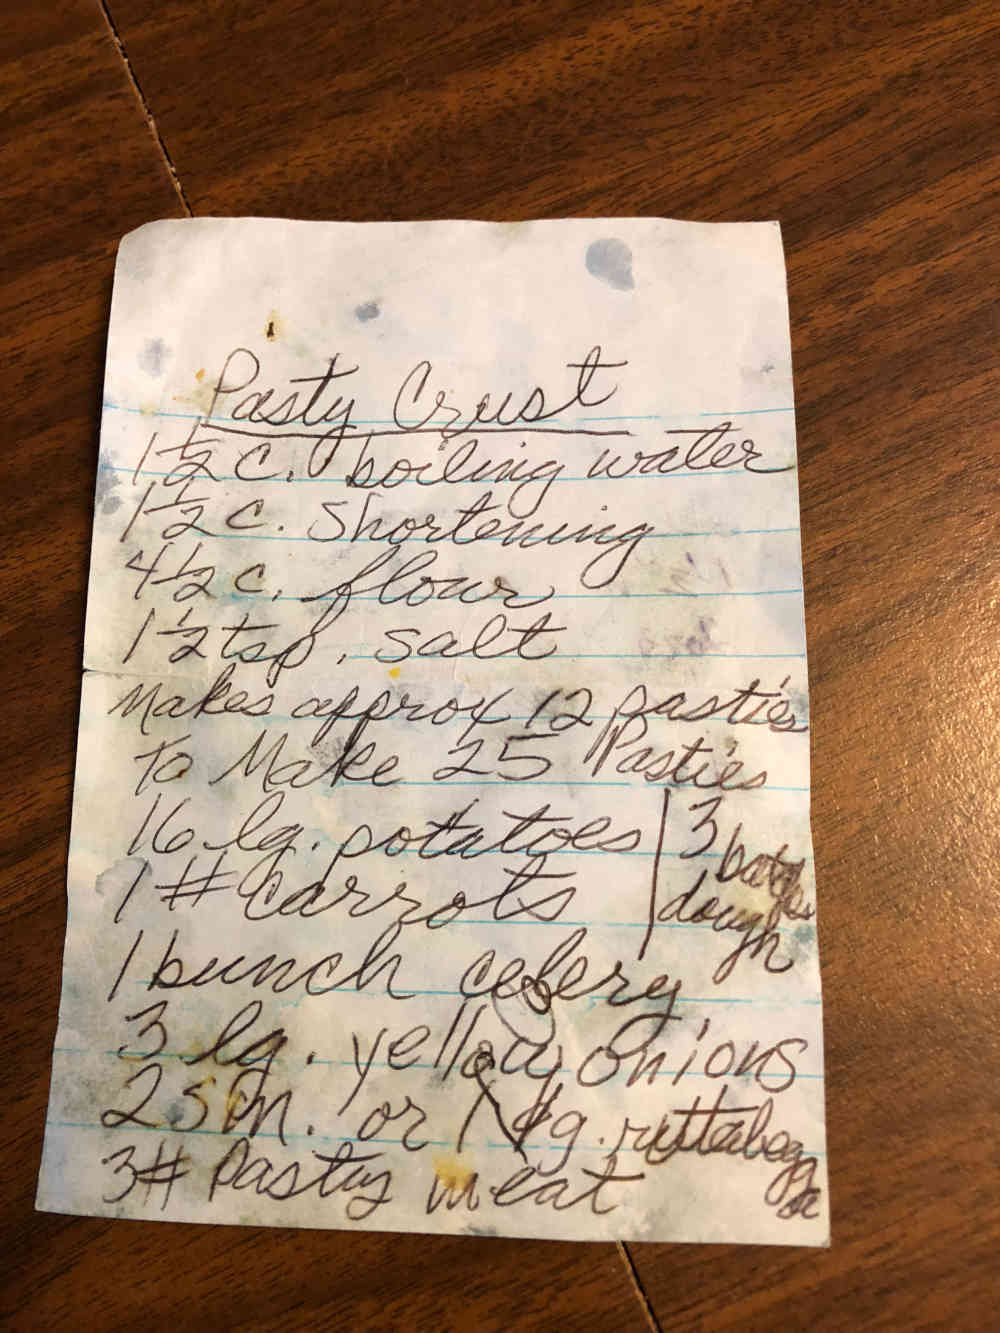 Pasty Crust
1 1/2 c. boiling water
1 1/2 c. shortening
4 1/2 c. flour
1 1/2 tsp. salt
Makes approx 12 pasties
To Make 25 Pasties
16 lg. potatoes | 3 batches
1 # carrots | dough
1 bunch celery
3 lg. yellow onions
2 sm. or 1 lg. ruttabegga
3# Pasty meat